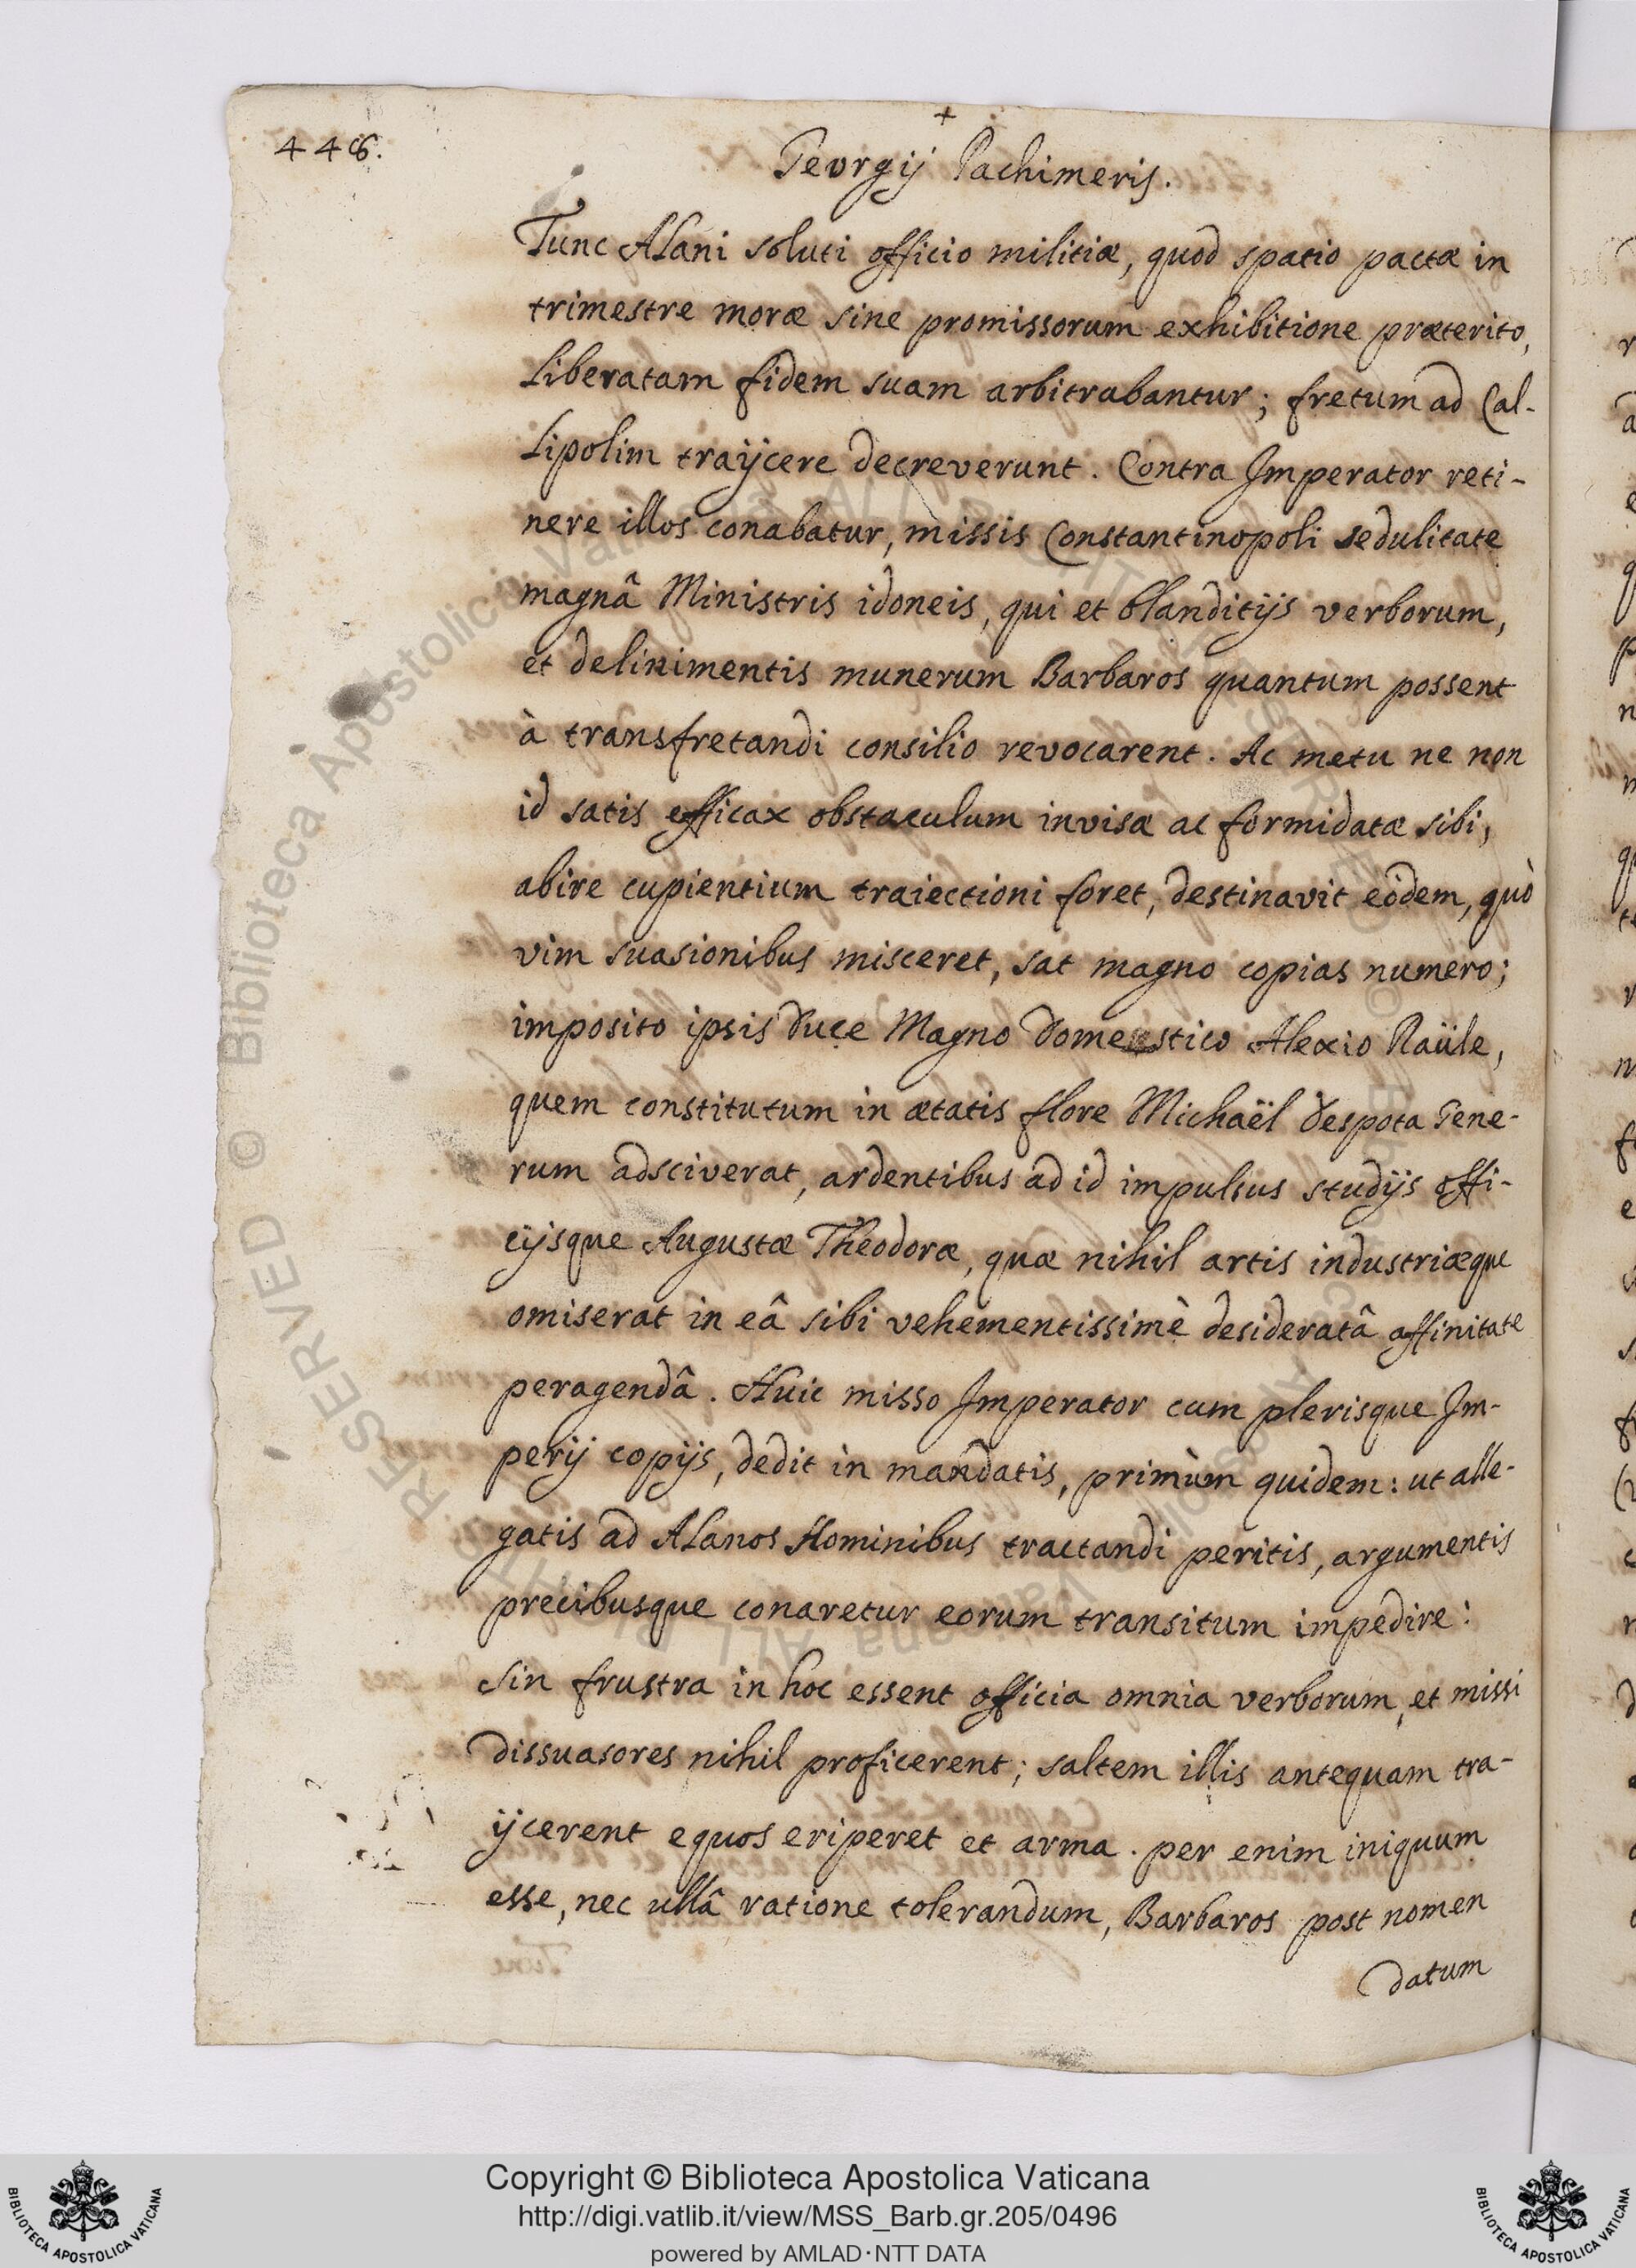 446.
+
Georgij Pachimeris.
Tunc Alani soluti officio militiæ, quod spatio pactæ in
trimestre moræ sine promissorum exhibitione præterito,
Liberatam fidem suam arbitrabantur; fretum ad Cal-
Lipolim traÿcere decreverunt. Contra Imperator reti-
nere illos conabatur, missis Constantinopoli sedulitate
magnâ Ministris idoneis, qui et blanditijs verborum,
et delinimentis munerum Barbaros quantum possent
à transfretandi consilio revocarent. Ac metu ne non
id satis efficax obstaculum invisæ ac formidatæ sibi,
abire cupientium traiectioni foret, destinavit eòdem, quò
vim suasionibus misceret, sat magno copias numero;
imposito ipsis Duce Magno Domestico Alexio Raüle,
quem constitutum in ætatis flore Michaël Despota Gene-
rum adsciverat, ardentibus ad id impulsus studijs offi-
cijsque Augustæ Theodoræ, quæ nihil artis industriæque
omiserat in eâ sibi vehementissimè desideratâ affinitate
peragendâ. Huic misso Imperator cum plerisque Im-
perij copijs, dedit in mandatis, primùm quidem: ut alle-
gatis ad Alanos Hominibus tractandi peritis, argumentis
precibusque conaretur eorum transitum impedire:
Sin frustra in hoc essent officia omnia verborum, et missi
Dissuasores nihil proficerent; saltem illis antequam tra-
ijcerent equos eriperet et arma. per enim iniquum
esse, nec ullâ ratione tolerandum, Barbaros post nomen
Datum
Copyright © Biblioteca Apostolica Vaticana
http://digi.vatlib.it/view/MSS_Barb.gr.205/0496
powered by AMLAD·NTT DATA
BIBLIOTECA APOSTOLICA VATICANA
BIBLIOTECA APOSTOLICA VATICANA